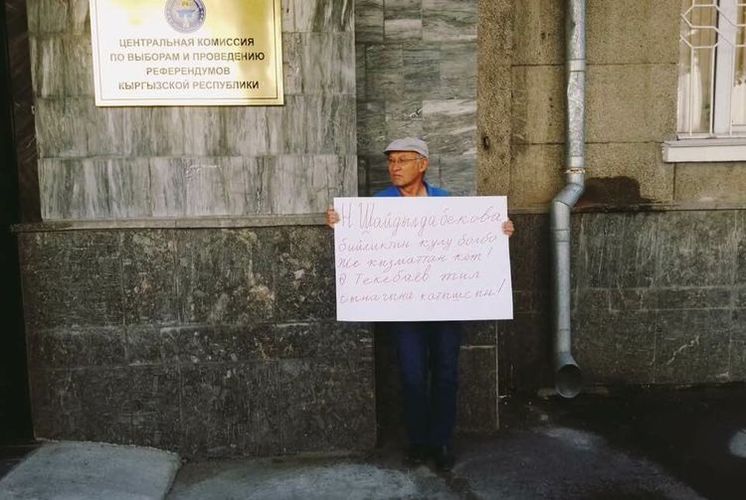 ЦЕНТРАЛЬНАЯ КОМИССИЯ
ПО ВЫБОРАМ И ПРОВЕДЕНИЮ
РЕФЕРЕНДУМОВ
КЫРГЫЗСКОЙ РЕСПУБЛИКИ
Н. Шайдылдабекова
бийликтин кулу болбо
же кызматтан кет!
Ө Текебаев тил
сынагына катышсын!